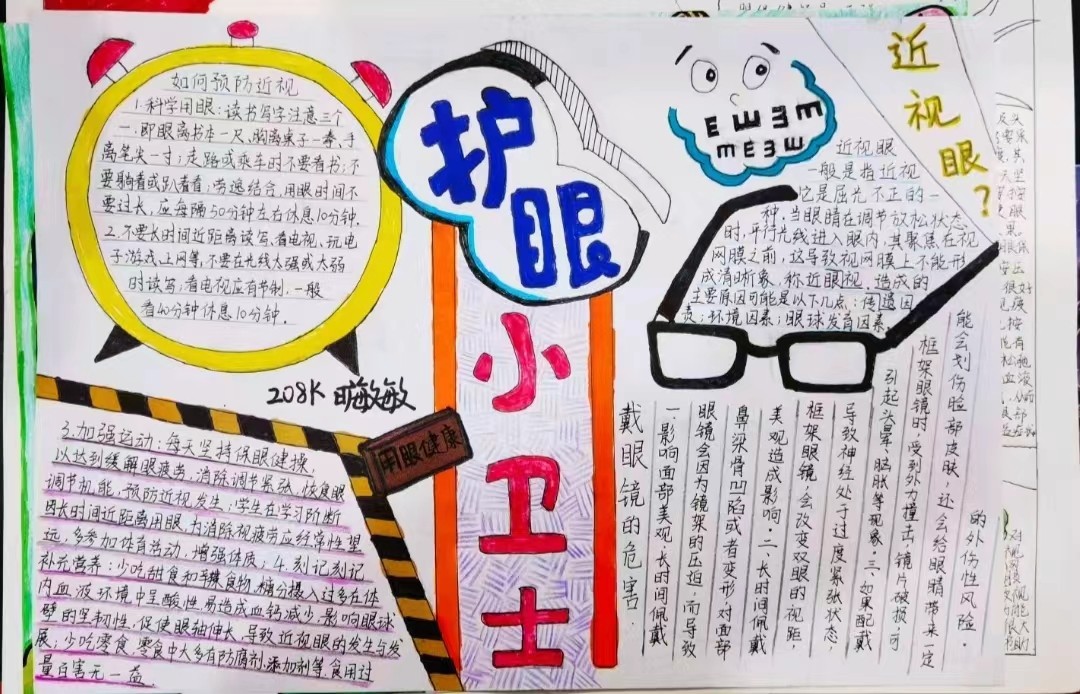 如何预防近视
1.科学用眼:读书写字注意三个
一.即眼离书本一尺,胸离桌子一拳,手
离笔尖一寸;走路或乘车时不要看书;不
要躺着或趴着看;劳逸结合,用眼时间不
要过长,应每隔50分钟左右休息10分钟.
2.不要长时间近距离读写、看电视、玩电
子游戏上网等,不要在光线太强或太弱
时读写,看电视应有节制.一般
看40分钟休息10分钟.
护眼
小卫士
208K
敏
用眼健康
3.加强运动:每天坚持保眼健操,
以达到缓解眼疲劳,消除调节紧张,恢食眼
调节机能,预防近视发生;学生在学习阶断
因长时间近距离用眼,为消除视疲劳应经常性望
远,多参加体育活动,增强体质;4.刻记刻记
补充营养:少吃甜食和辛糖食物,糖分摄入过多在体
内血液环境中呈酸性易造成血钙减少,影响眼球
壁的坚韧性,促使眼轴伸长,导致近视眼的发生与发
展;少吃零食,零食中大多有防腐剂.添加剂等,食用过
量百害无一益.
E W E M E
M E 3 W
近视眼?
近视眼
一般是指近视
它是屈光不正的一
种,当眼睛在调节放松状态
时,平行光线进入眼内,其聚焦在视
网膜之前,这导致视网膜上不能形
成清晰象,称近眼视.造成的
主要原因可能是以下几点:传遗因
责;环境因素;眼球发育因素.
戴眼镜的危害.
一.影响面部美观.长时间佩戴
眼镜会因为镜架的压迫,而导致
鼻梁骨凹陷或者变形,对面部
美观造成影响.二、长时间佩戴
框架眼镜,会改变双眼的视距,
导致神经处于过度紧张状态,
引起头晕、脑胀等现象.三、如果配戴
框架眼镜时,受到外力撞击,镜片破损,可
能会划伤脸部皮肤,还会给眼睛带来一定
的外伤性风险.